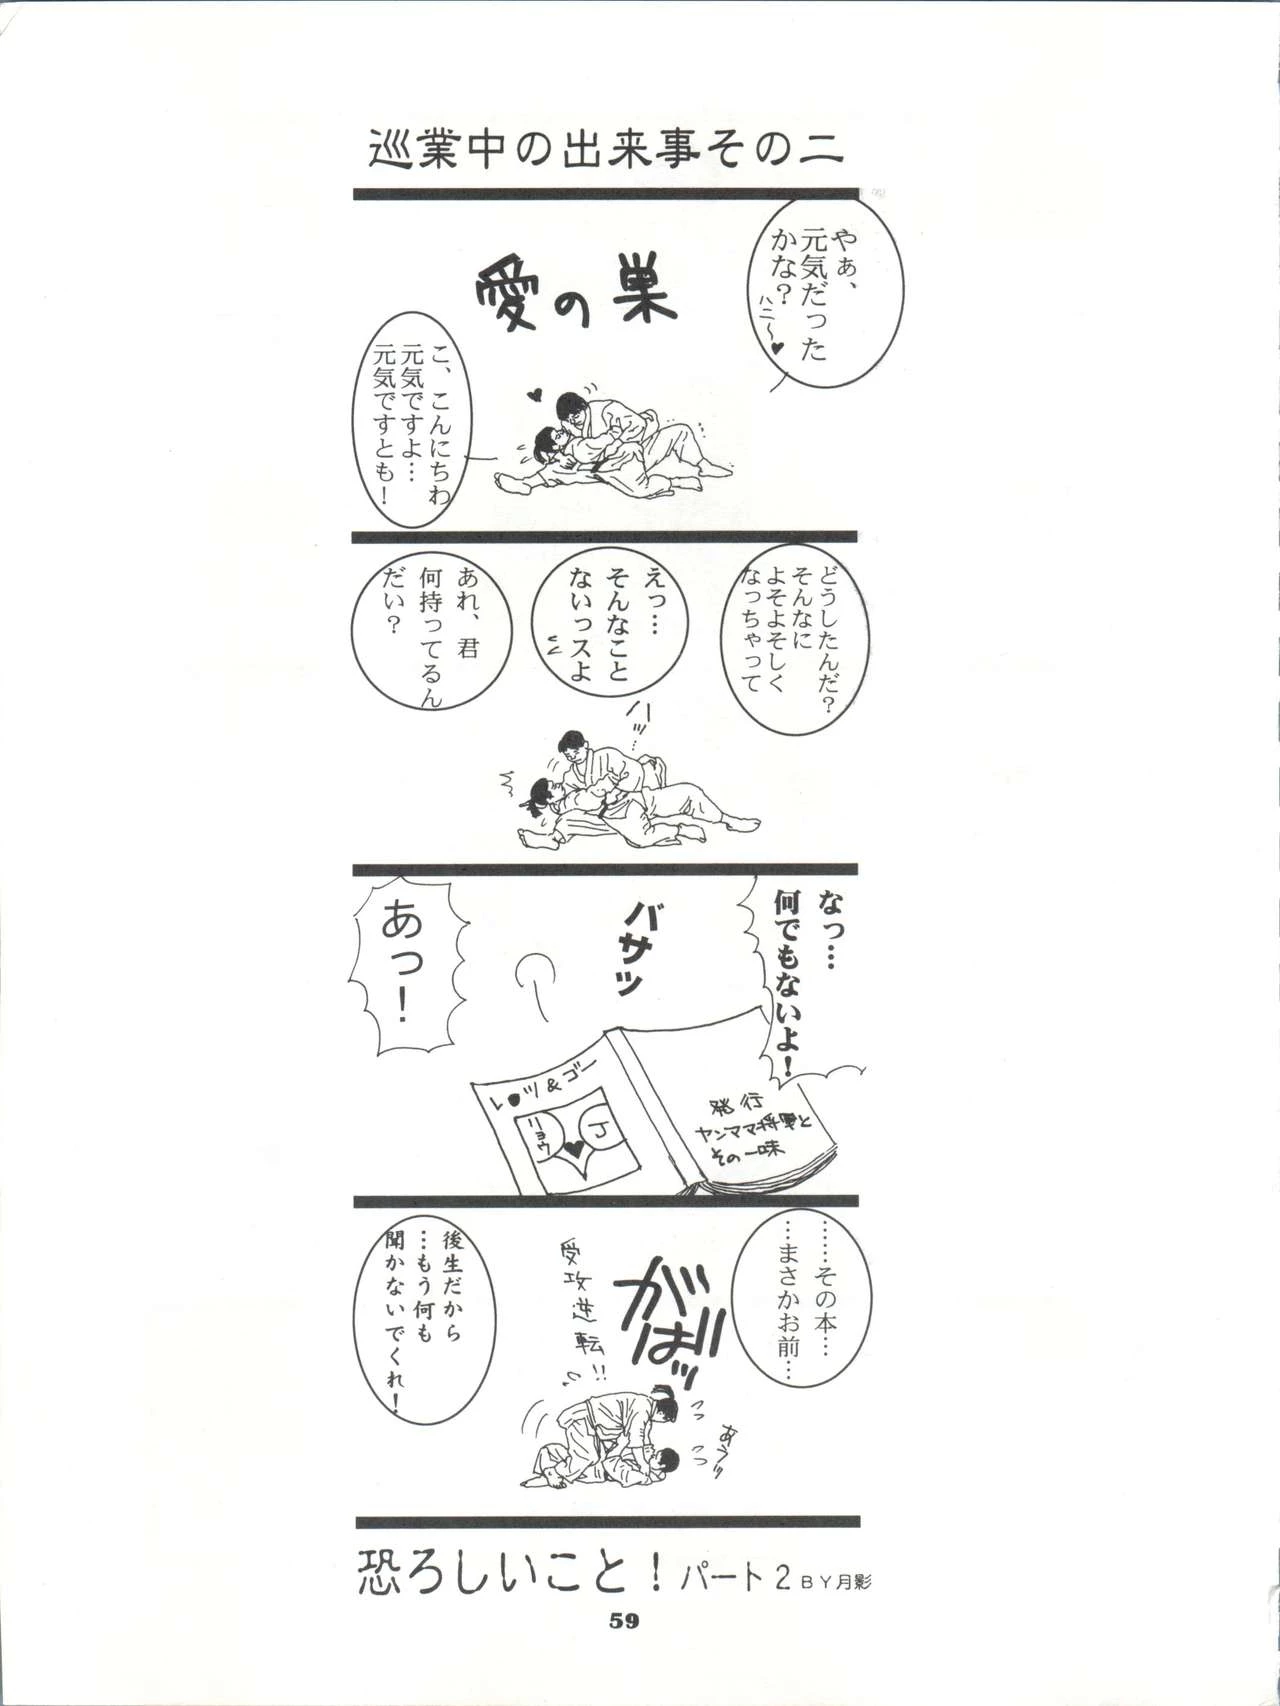 巡業中の出来事その二
やぁ、
元気だった
かな？
ハニ〜♥
愛の巣
こ、こんにちわ
元気ですよ…
元気ですとも！
どうしたんだ？
そんなに
よそよそしく
なっちゃって
えっ…
そんなこと
ないっスよ
ハッ…
あれ、君
何持ってるん
だい？
なっ…
何でもないよ！
バサッ
あっ！
レ●ツ＆ゴー
リョウ
♥
J
発行
ヤンママ将軍と
その一味
……その本…
…まさかお前…
がばッ
受攻逆転!!
あうッ
後生だから
…もう何も
聞かないでくれ！
恐ろしいこと！パート2 BY月影
59